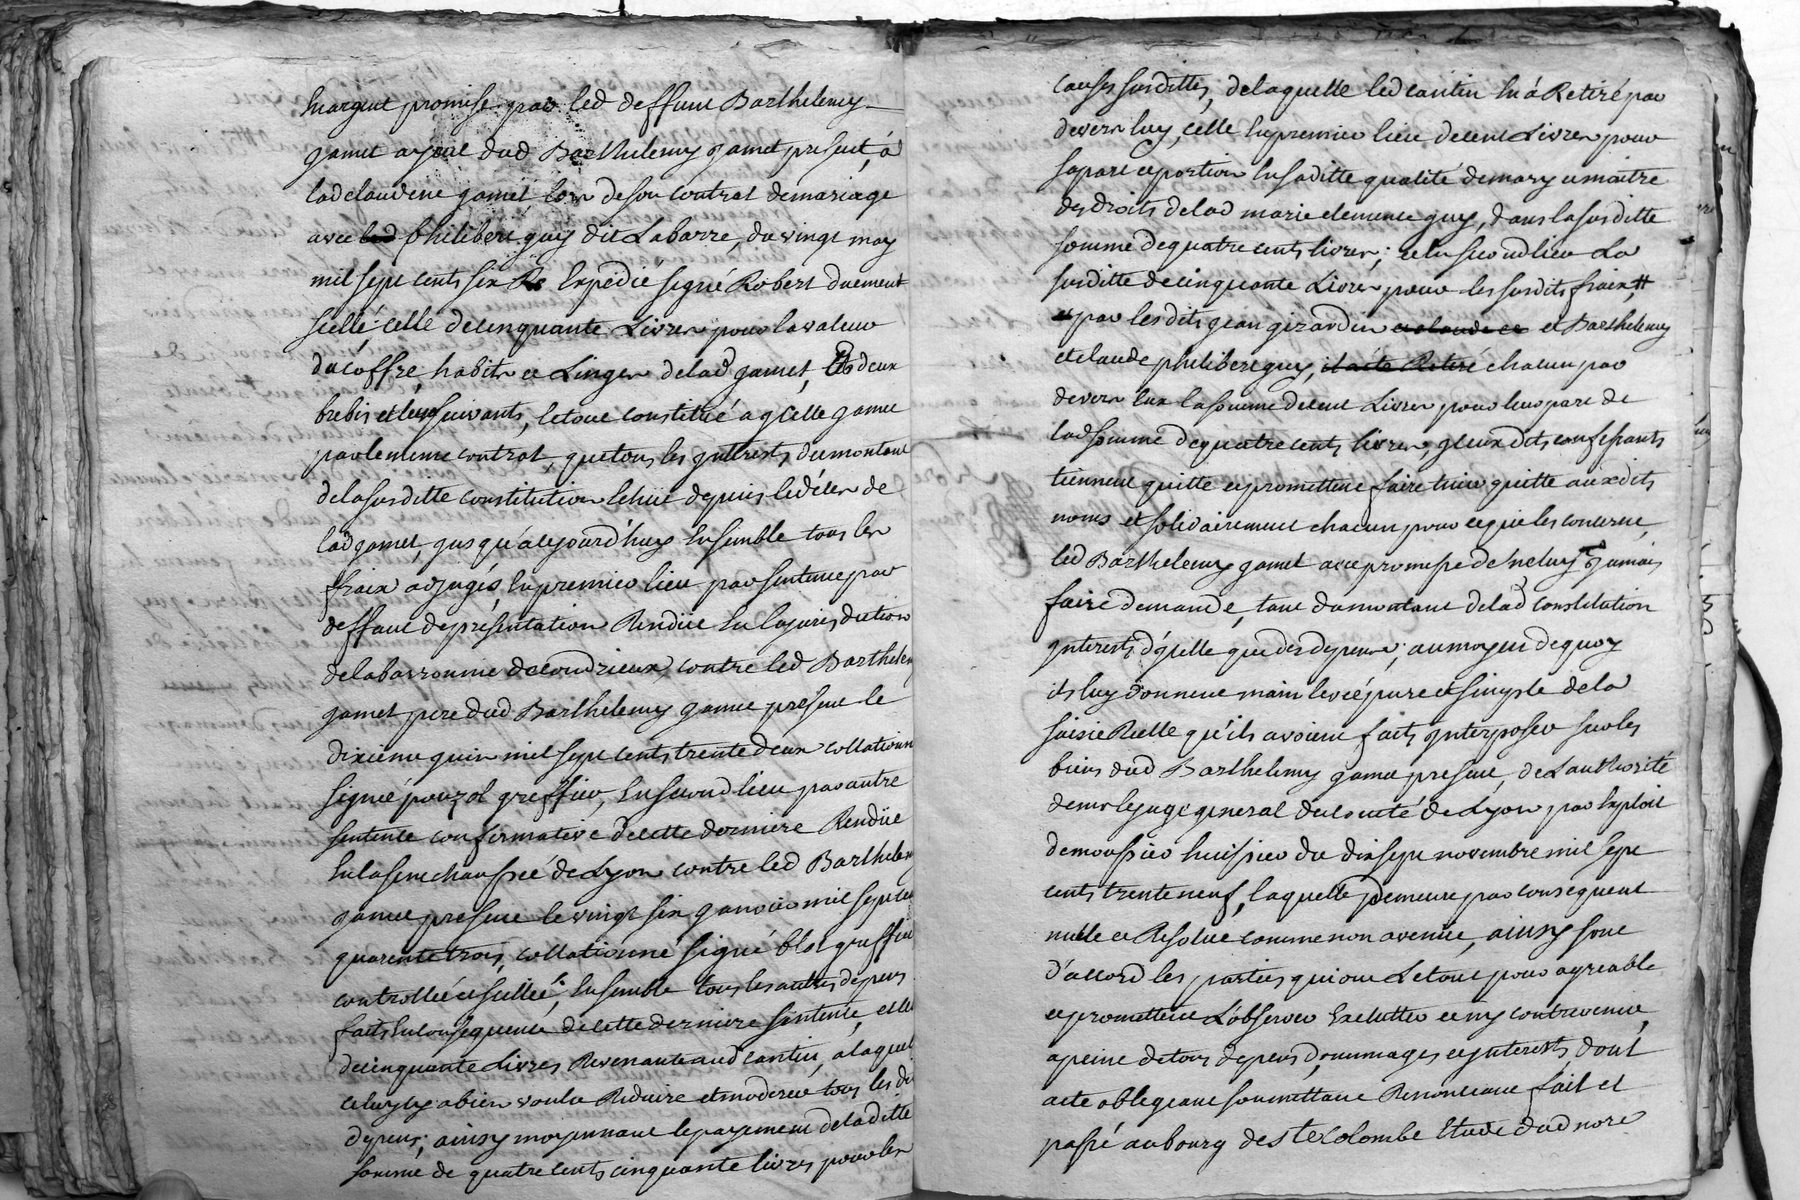 En argent promise par led deffunt Barthelemy
gamet ayeul dud Barthelemy gamet present, à
lad claudene gamet, lors de son contrat de mariage
avec led philibert guy dit Labarre, du vingt may
mil sept cents six Expedié signé Robert duement
scellé: celle de cinquante Livres pour la valeur
du coffre, habits et Linges de lad gamet, deux
brebis et leurs suivants, le tout constitué a ycelle gamet
par le meme contrat, que tous les ynterests du montant
de la susditte constitution Echüe depuis le décès de
lad gamet, jusqu'a cejourd'huy Ensemble tous les
fraix adjugés, En premier lieu par sentence par
deffaut de présentation Rendüe En la jurisdiction
de la baronnie de condrieux, contre led Barthelemy
gamet pere dud Barthelemy gamet present le
dixieme juin mil sept cents trente deux collationné
signée pouzol greffier, En second lieu par autre
sentence confirmative de cette derniere Rendüe
En la senechaussée de Lyon contre led Barthelemy
gamet present le vingt six janvier mil sept cent
quarente trois, collationné signé blot greffier
controllée et scellée, Ensemble tous les autres depens
faits En consequence de cette derniere sentence, et
de cinquante Livres Revenante aud cantin, a laquelle
celuy cy a bien voulu Reduire et moderer tous les dits
depens; ainsy moyennant le payement de laditte
somme de quatre cents cinquante livres pour les
causes susdittes, de laquelle led cantin En a Retiré par
devers luy, celle En premier lieu de cent Livres pour
sa part et portion En saditte qualité de mary et maitre
des droits de lad marie clemence guy, dans la susditte
somme de quatre cents livres; et En second lieu La
susditte de cinquante Livres pour les susdits fraix, #
et par lesdits jean girardin et claude et et Barthelemy
et claude philibert guy, il a été Retiré chacun par
devers Eux la somme de cent Livres pour leur part de
lad somme de quatre cents livres, yceux dits confessants
tiennent quitte et promettent faire tenir quitte auxdits
noms et solidairement chacun pour ce qui les concerne,
led Barthelemy gamet avec promesse de ne luy jamais
faire demande, tant du montant de lad constitution
ynterests d'ycelle que des depens; au moyen de quoy
ils luy donnent main levée pure et simple de la
saisie Réelle qu'ils avoient faits ynterposer sur les
biens dud Barthelemy gamet present, de L'authorité
de mr le juge general du comté de Lyon par Exploit
de moussier huissier du dix sept novembre mil sept
cents trente neuf, laquelle demeure par consequent
nulle et Resolue comme non avenüe, ainsy sont
d'accord les parties qui ont Le tout pour agreable
et promettent L'observer Exécutter et n'y contrevenir,
a peine de tous depens, dommages et ynterests, dont
acte obligeant soumettant Renonceant fait et
passé au bourg de Ste Colombe Etude dud nore